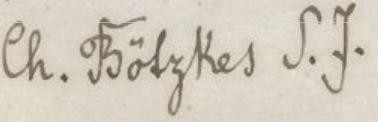 Ch. Bötzkes S. J.